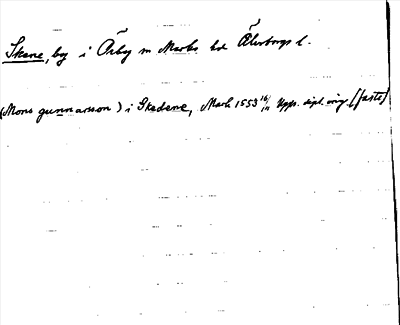 Skene, by i Örby sn Marks hd Älvsborgs l.
(Mons gunnarsson) i Skedene, Mark 1553 16/11 Upps. dipl. orig. (faste)